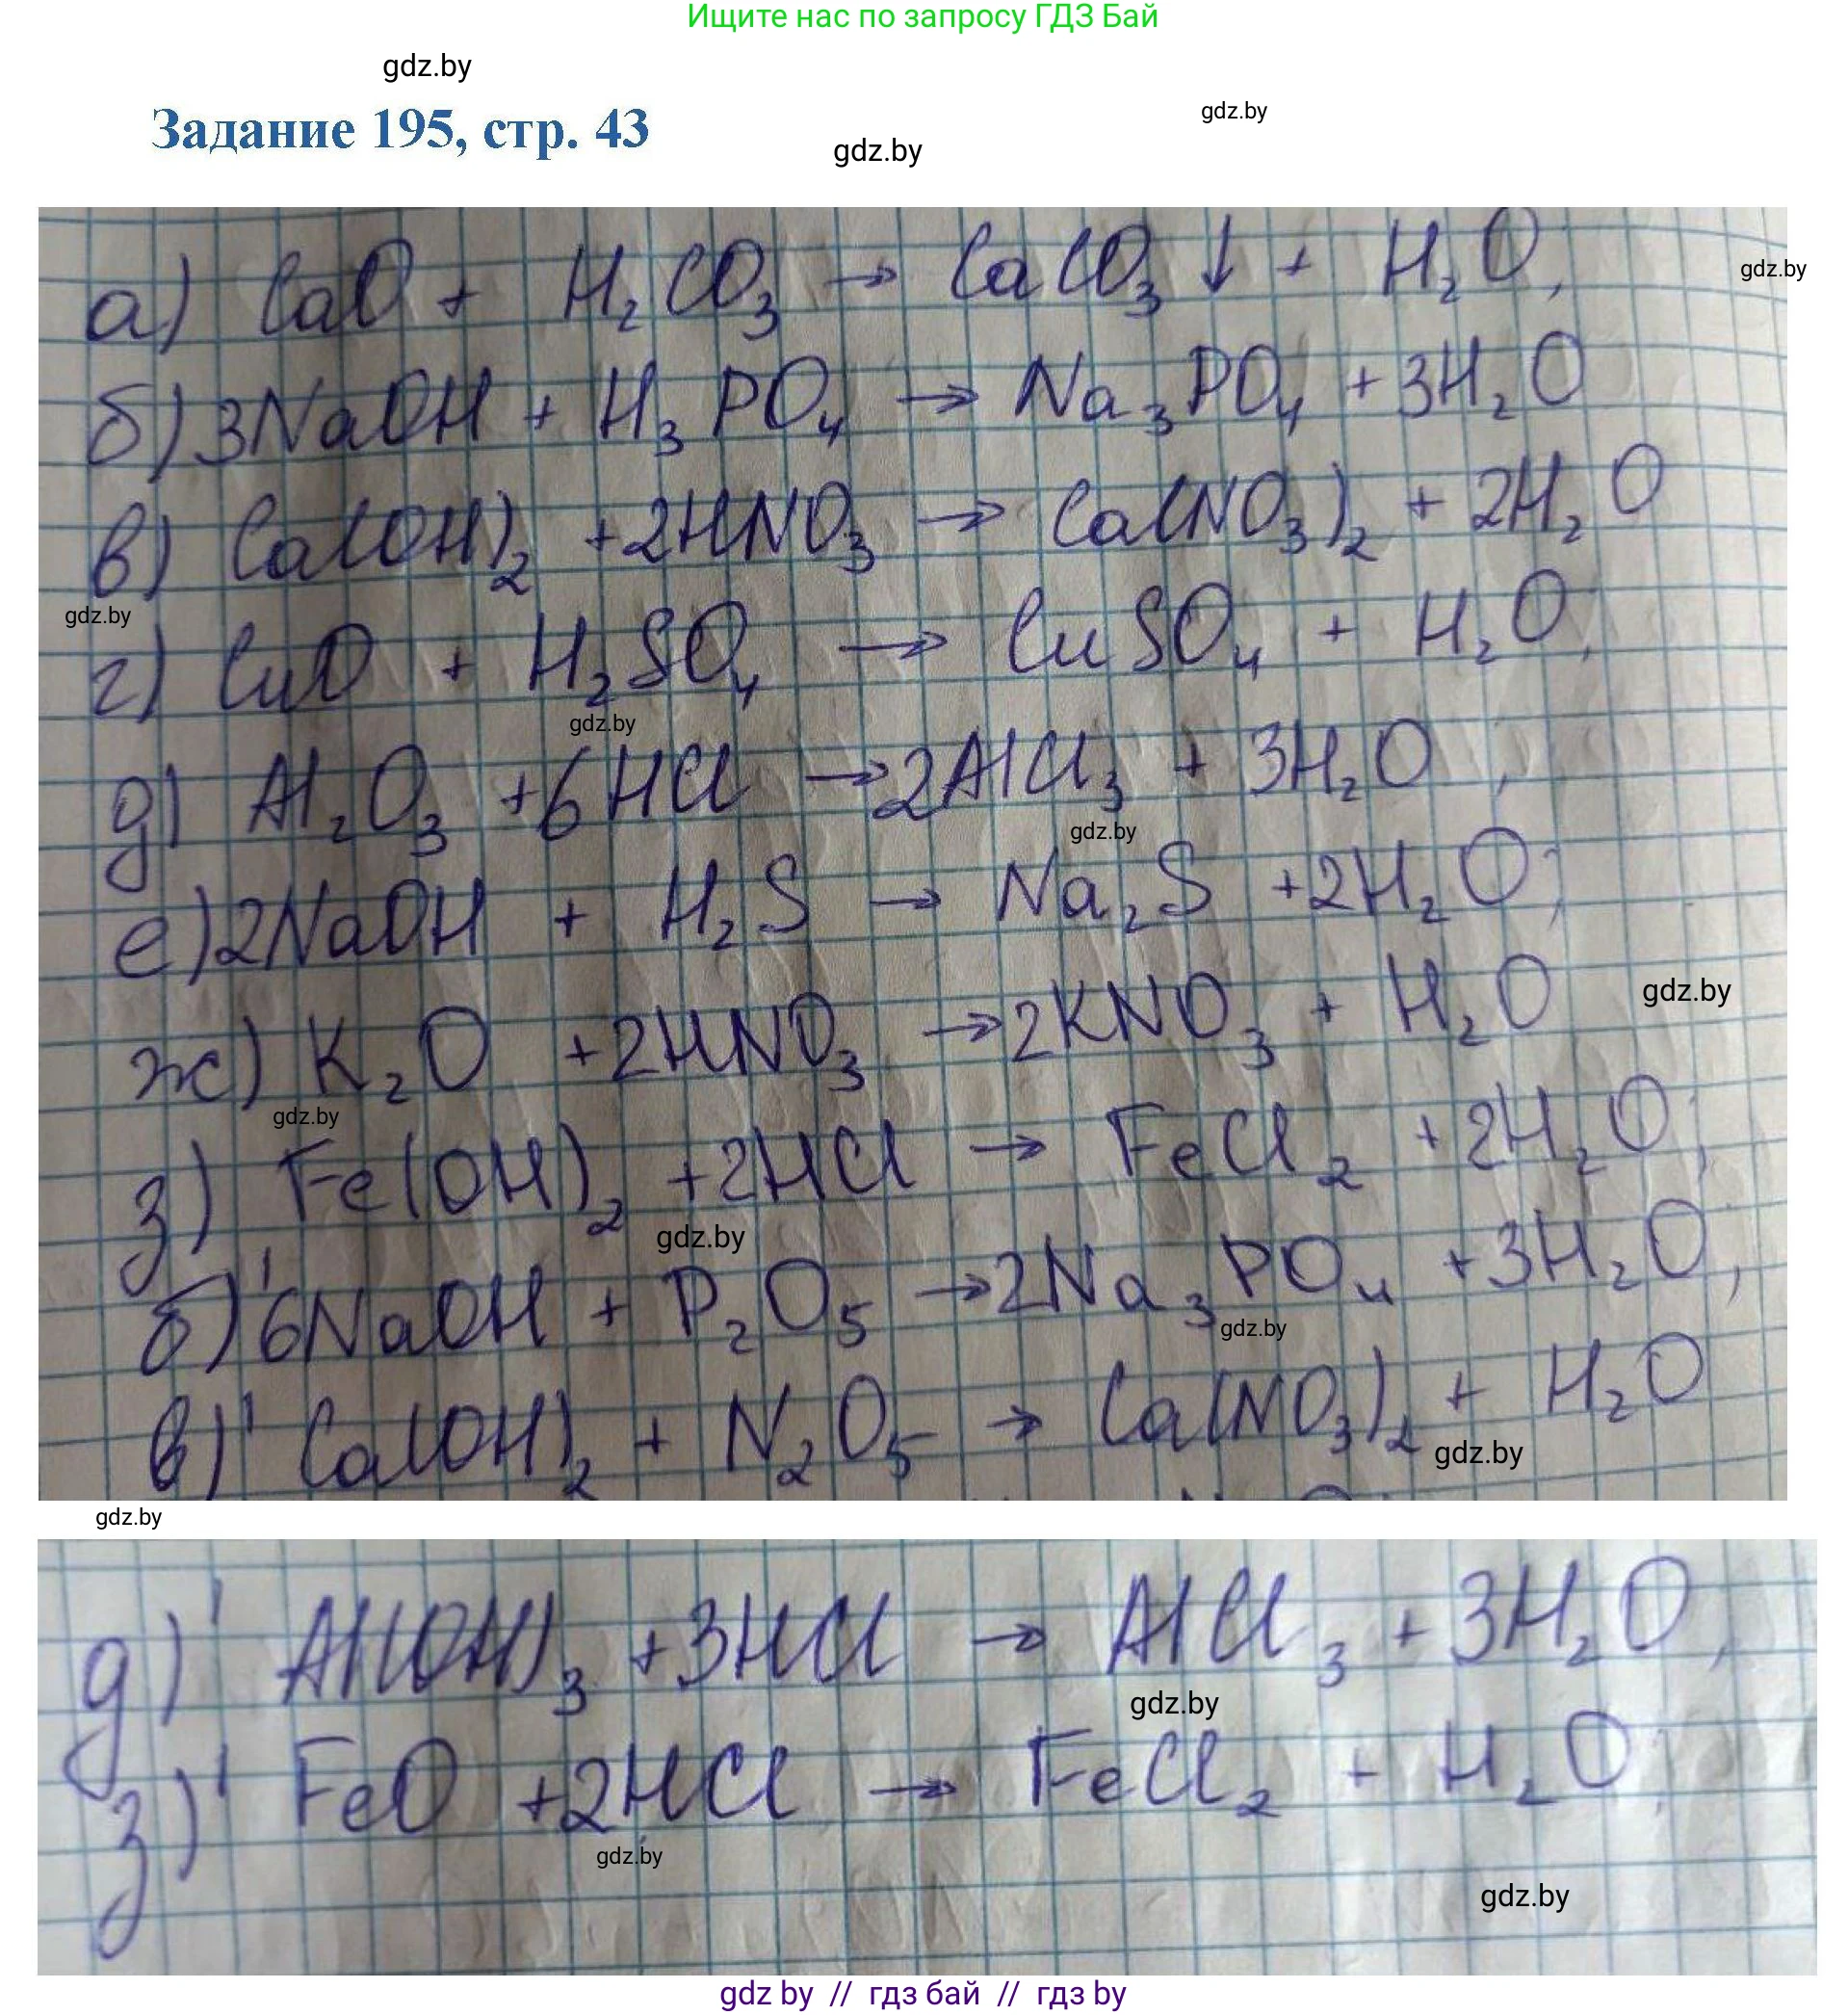 Ищите нас по запросу ГДЗ Бай
gdz.by
gdz.by
Задание 195, стр. 43
gdz.by
а) CaO + H₂CO₃ → CaCO₃↓ + H₂O,
gdz.by
б) 3NaOH + H₃PO₄ → Na₃PO₄ + 3H₂O
в) Ca(OH)₂ + 2HNO₃ → Ca(NO₃)₂ + 2H₂O
gdz.by
г) CuO + H₂SO₄ → CuSO₄ + H₂O,
gdz.by
д) Al₂O₃ + 6HCl → 2AlCl₃ + 3H₂O,
gdz.by
е) 2NaOH + H₂S → Na₂S + 2H₂O;
gdz.by
ж) K₂O + 2HNO₃ → 2KNO₃ + H₂O
gdz.by
з) Fe(OH)₂ + 2HCl → FeCl₂ + 2H₂O;
gdz.by
б)' 6NaOH + P₂O₅ → 2Na₃PO₄ + 3H₂O,
gdz.by
в)' Ca(OH)₂ + N₂O₅ → Ca(NO₃)₂ + H₂O
gdz.by
gdz.by
д)' Al(OH)₃ + 3HCl → AlCl₃ + 3H₂O,
gdz.by
з)' FeO + 2HCl → FeCl₂ + H₂O;
gdz.by
gdz.by
gdz by // гдз бай // гдз by